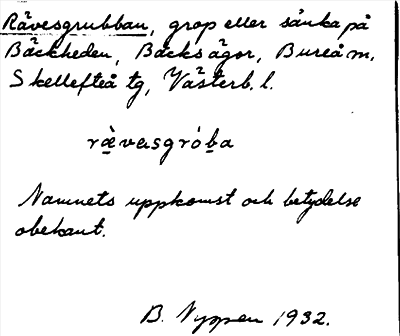 Rävesgrubban, grop eller sänka på
Bäckheden, Bäcksägor, Bureå m.
Skellefteå tg, Västerb. l.
rävasgròba
Namnets uppkomst och betydelse
obekant.
B. Nygren 1932.